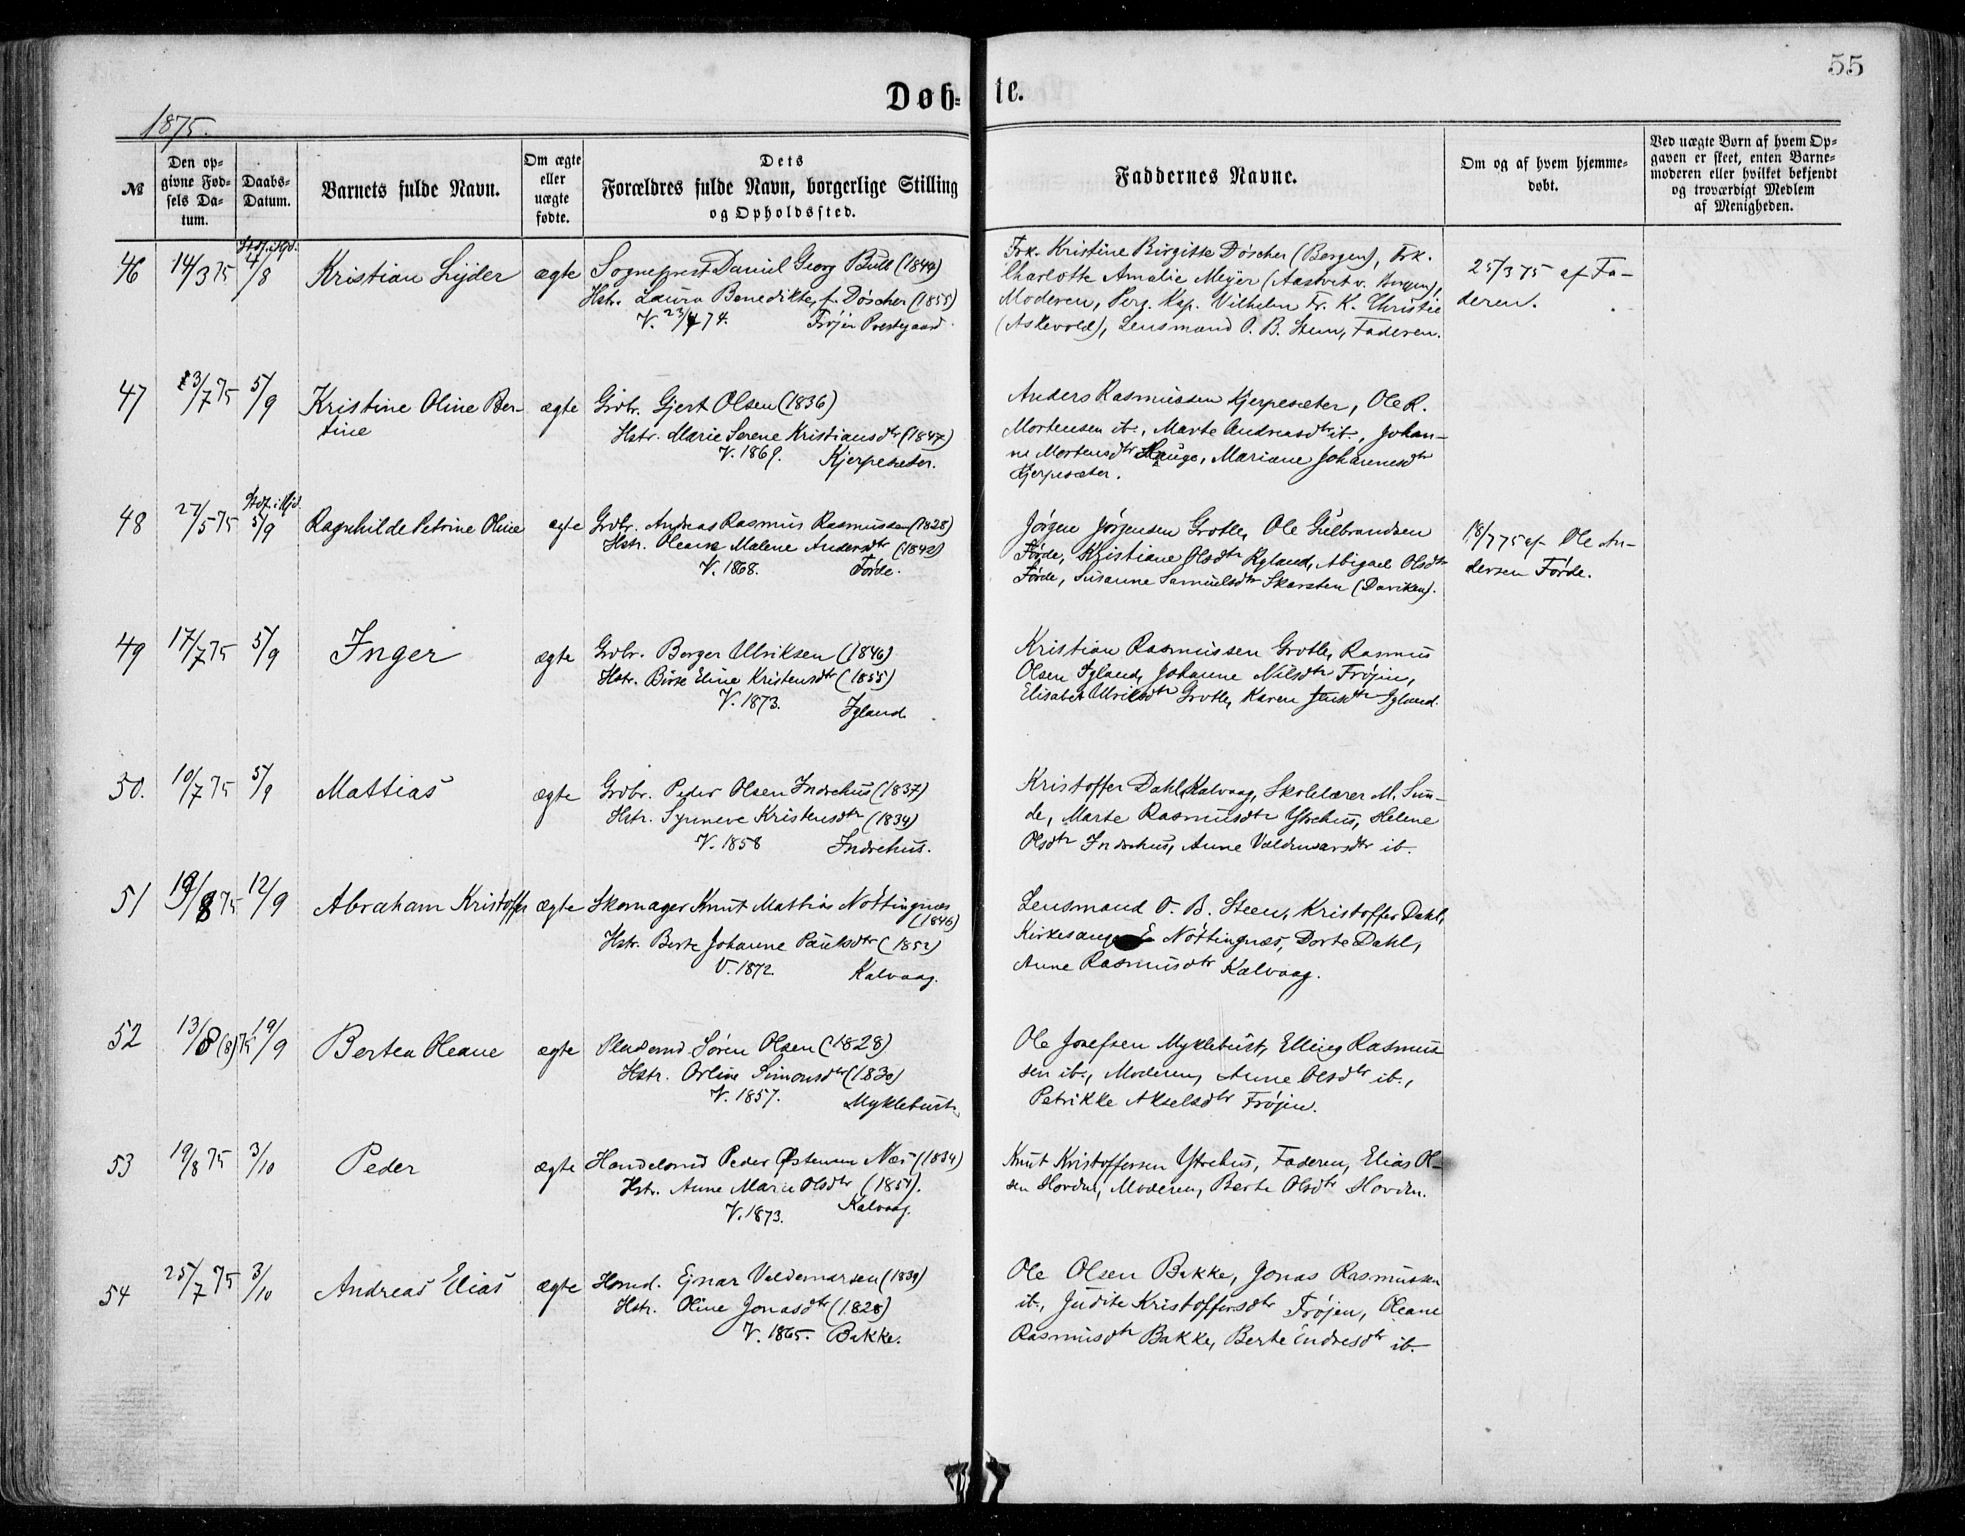 55
Døb=
te.
1875.
№
Den op=
givne Fød=
sels Da=
tum.
Daabs=
Datum.
Barnets fulde Navn.
Om ægte
eller
uægte
fødte.
Dets
Forældres fulde Navn, borgerlige Stilling
og Opholdssted.
Faddernes Navne.
Om og af hvem hjemme=
døbt.
Ved uægte Børn af hvem Op=
gaven er skeet, enten Barne=
moderen eller hvilket bekjendt
og troværdigt Medlem
af Menigheden.
46 14/3 75 4/8 Kristian Lyder ægte Sogneprest Daniel Georg Bull (1849)
Hstr. Laura Benedikte f. Døscher (1855)
V. 23/4 74. Frøjen Prestgaard.
Frk. Kristine Birgitte Døscher (Bergen), Frk.
Charlotte Amalie Meyer (Aastvet v. Bergen),
Moderen, Perg. Kap. Wilhelm Fr. K. Christie
(Askevold), Lensmand O. B. Steen, Faderen.
25/3 75 af Fa-
deren.
47 13/7 75 5/9 Kristine Oline Ber-
tine
ægte Grbr. Gjert Olsen (1836)
Hstr. Marie Serene Kristiansdtr (1847)
V. 1869. Kjerpeseter.
Anders Rasmussen Kjerpeseter, Ole R.
Mortensen ib., Marte Andreasdtr ib., Johan-
ne Mortensdtr Hauge, Mariane Johannesdtr
Kjerpeseter.
48 27/5 75 5/9 Ragnhilde Petrine Oline ægte Grbr. Andreas Rasmus Rasmussen (1828)
Hstr. Oleane Malene Andersdtr (1842)
V. 1868. Førde.
Jørgen Jørgensen Grotle, Ole Gulbrandsen
Førde, Kristiane Olsdtr Rylund, Abigael Olsdtr
Førde, Susanne Samuelsdtr Skarsten (Daviken).
18/7 75 af Ole An-
dersen Førde.
49 17/7 75 5/9 Inger ægte Grbr. Borger Ulriksen (1846)
Hstr. Birte Eline Kristensdtr (1855)
V. 1873. Igland.
Kristian Rasmussen Grotle, Rasmus
Olsen Igland, Johanne Nilsdtr Frøjen,
Elisabet Ulriksdtr Grotle, Karen Jensdtr Igland.
50. 10/7 75 5/9 Mattias ægte Grbr. Peder Olsen Indrehus (1837)
Hstr. Synneve Kristensdtr (1834)
V. 1858 Indrehus.
Kristoffer Dahl Kalvaag, Skolelærer M. Sun-
de, Marte Rasmusdtr Ytrehus, Helene
Olsdtr Indrehus, Anne Valdemarsdtr ib.
51 19/8 75 12/9 Abraham Kristoffer ægte Skomager Knut Mattias Nøttingnæs
(1846)
Hstr. Berte Johanne Paulsdtr (1852)
V. 1872. Kalvaag.
Lensmand O. B. Steen, Kristoffer Dahl,
Kirkesanger E. Nøttingnæs, Dorte Dahl,
Anne Rasmusdtr Kalvaag.
52 13/8 (8) 75 19/9 Bertea Oleane ægte Pladsmd Søren Olsen (1828)
Hstr. Orline Simonsdtr (1830)
V. 1857. Myklebust.
Ole Josefsen Myklebust, Elling Rasmus
sen ib., Moderen, Anne Olsdtr ib.,
Petrikke Akselsdtr Frøjen.
53 19/8 75 3/10 Peder ægte Handelsmd Peder Østensen Næs (1834)
Hstr. Anne Marie Olsdtr (1851).
V. 1873. Kalvaag.
Knut Kristoffersen Ytrehus, Faderen, Elias Ol-
sen Hovden, Moderen, Berte Olsdtr Hovden.
54 25/7 75 3/10 Andreas Elias ægte Hsmd. Ejnar Valdemarsen (1839)
Hstr. Oline Jonasdtr (1828)
V. 1865. Bakke.
Ole Olsen Bakke, Jonas Rasmussen
ib., Judite Kristoffersdtr Frøjen, Oleane
Rasmusdtr Bakke, Berte Endresdtr ib.